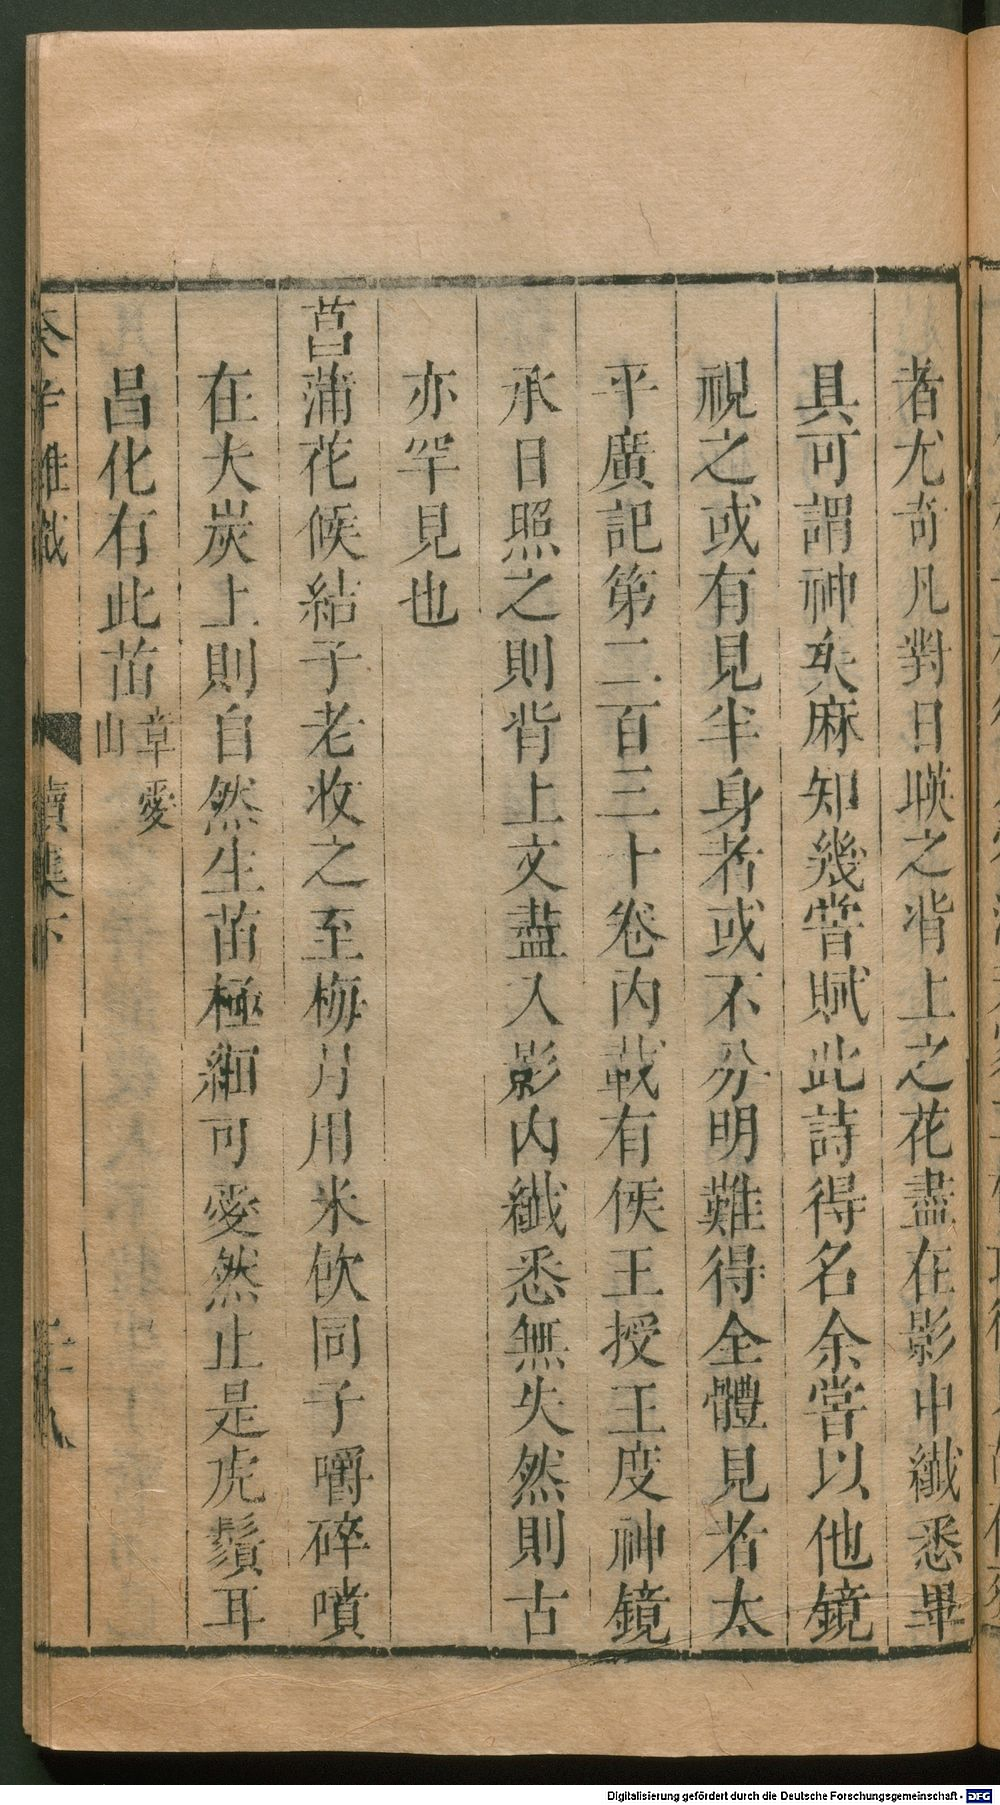 者尤奇凡對日暎之背上之花盡在影中纎悉畢
具可謂神矣麻知幾嘗賦此詩得名余嘗以他鏡
視之或有見半身者或不分明難得全體見者太
平廣記第二百三十卷内載有侯王授王度神鏡
承日照之則背上文盡入影内纎悉無失然則古
亦罕見也
菖蒲花候結子老收之至梅月用米飲同子嚼碎噴
在大炭上則自然生苗極細可愛然止是虎鬚耳
昌化有此苗章愛
山
癸辛雜識
續集下
Digitalisierung gefördert durch die Deutsche Forschungsgemeinschaft - DFG